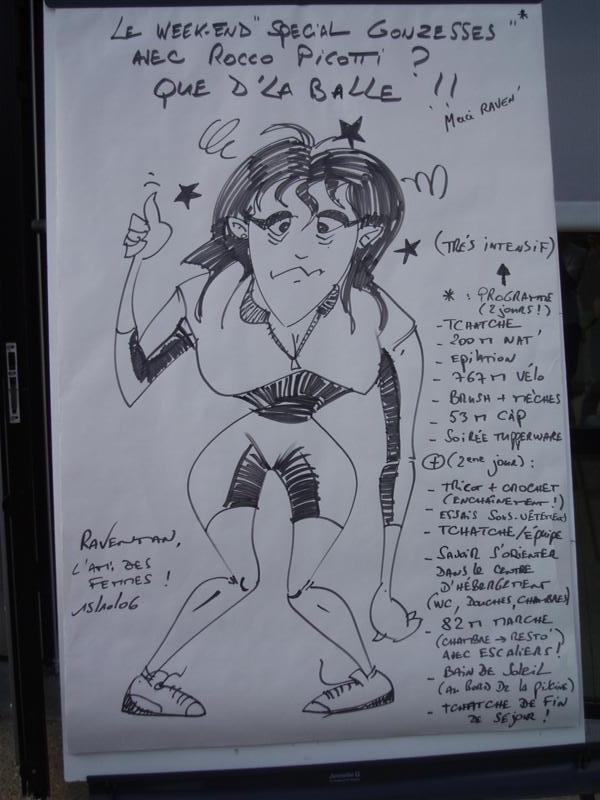 LE WEEK-END "SPECIAL GONZESSES" *
AVEC ROCCO PICOTTI ?
QUE D'LA BALLE !!
'Merci RAVEN'
(TRÈS INTENSIF)
* : PROGRAMME
(2 jours !)
- TCHATCHE
- 200 M NAT'
- EPILATION
- 767 M VÉLO
- BRUSH + MÈCHES
- 53 M CÀP
- SOIRÉE TUPPERWARE
(+) (2eme jour) :
- TRICOT + CROCHET
(ENCHAÎNEMENT !)
- ESSAIS SOUS-VÊTEMENTS
- TCHATCHE/ÉQUIPE
- SAVOIR S'ORIENTER
DANS LE CENTRE
D'HÉBERGEMENT
(WC, DOUCHES, CHAMBRES)
- 82 M MARCHE
(CHAMBRE → RESTO')
AVEC ESCALIERS !
- BAIN DE SOLEIL
(AU BORD DE LA PISCINE)
- TCHATCHE DE FIN
DE SÉJOUR !
RAVENMAN,
L'AMI DES
FEMMES !
15/10/06